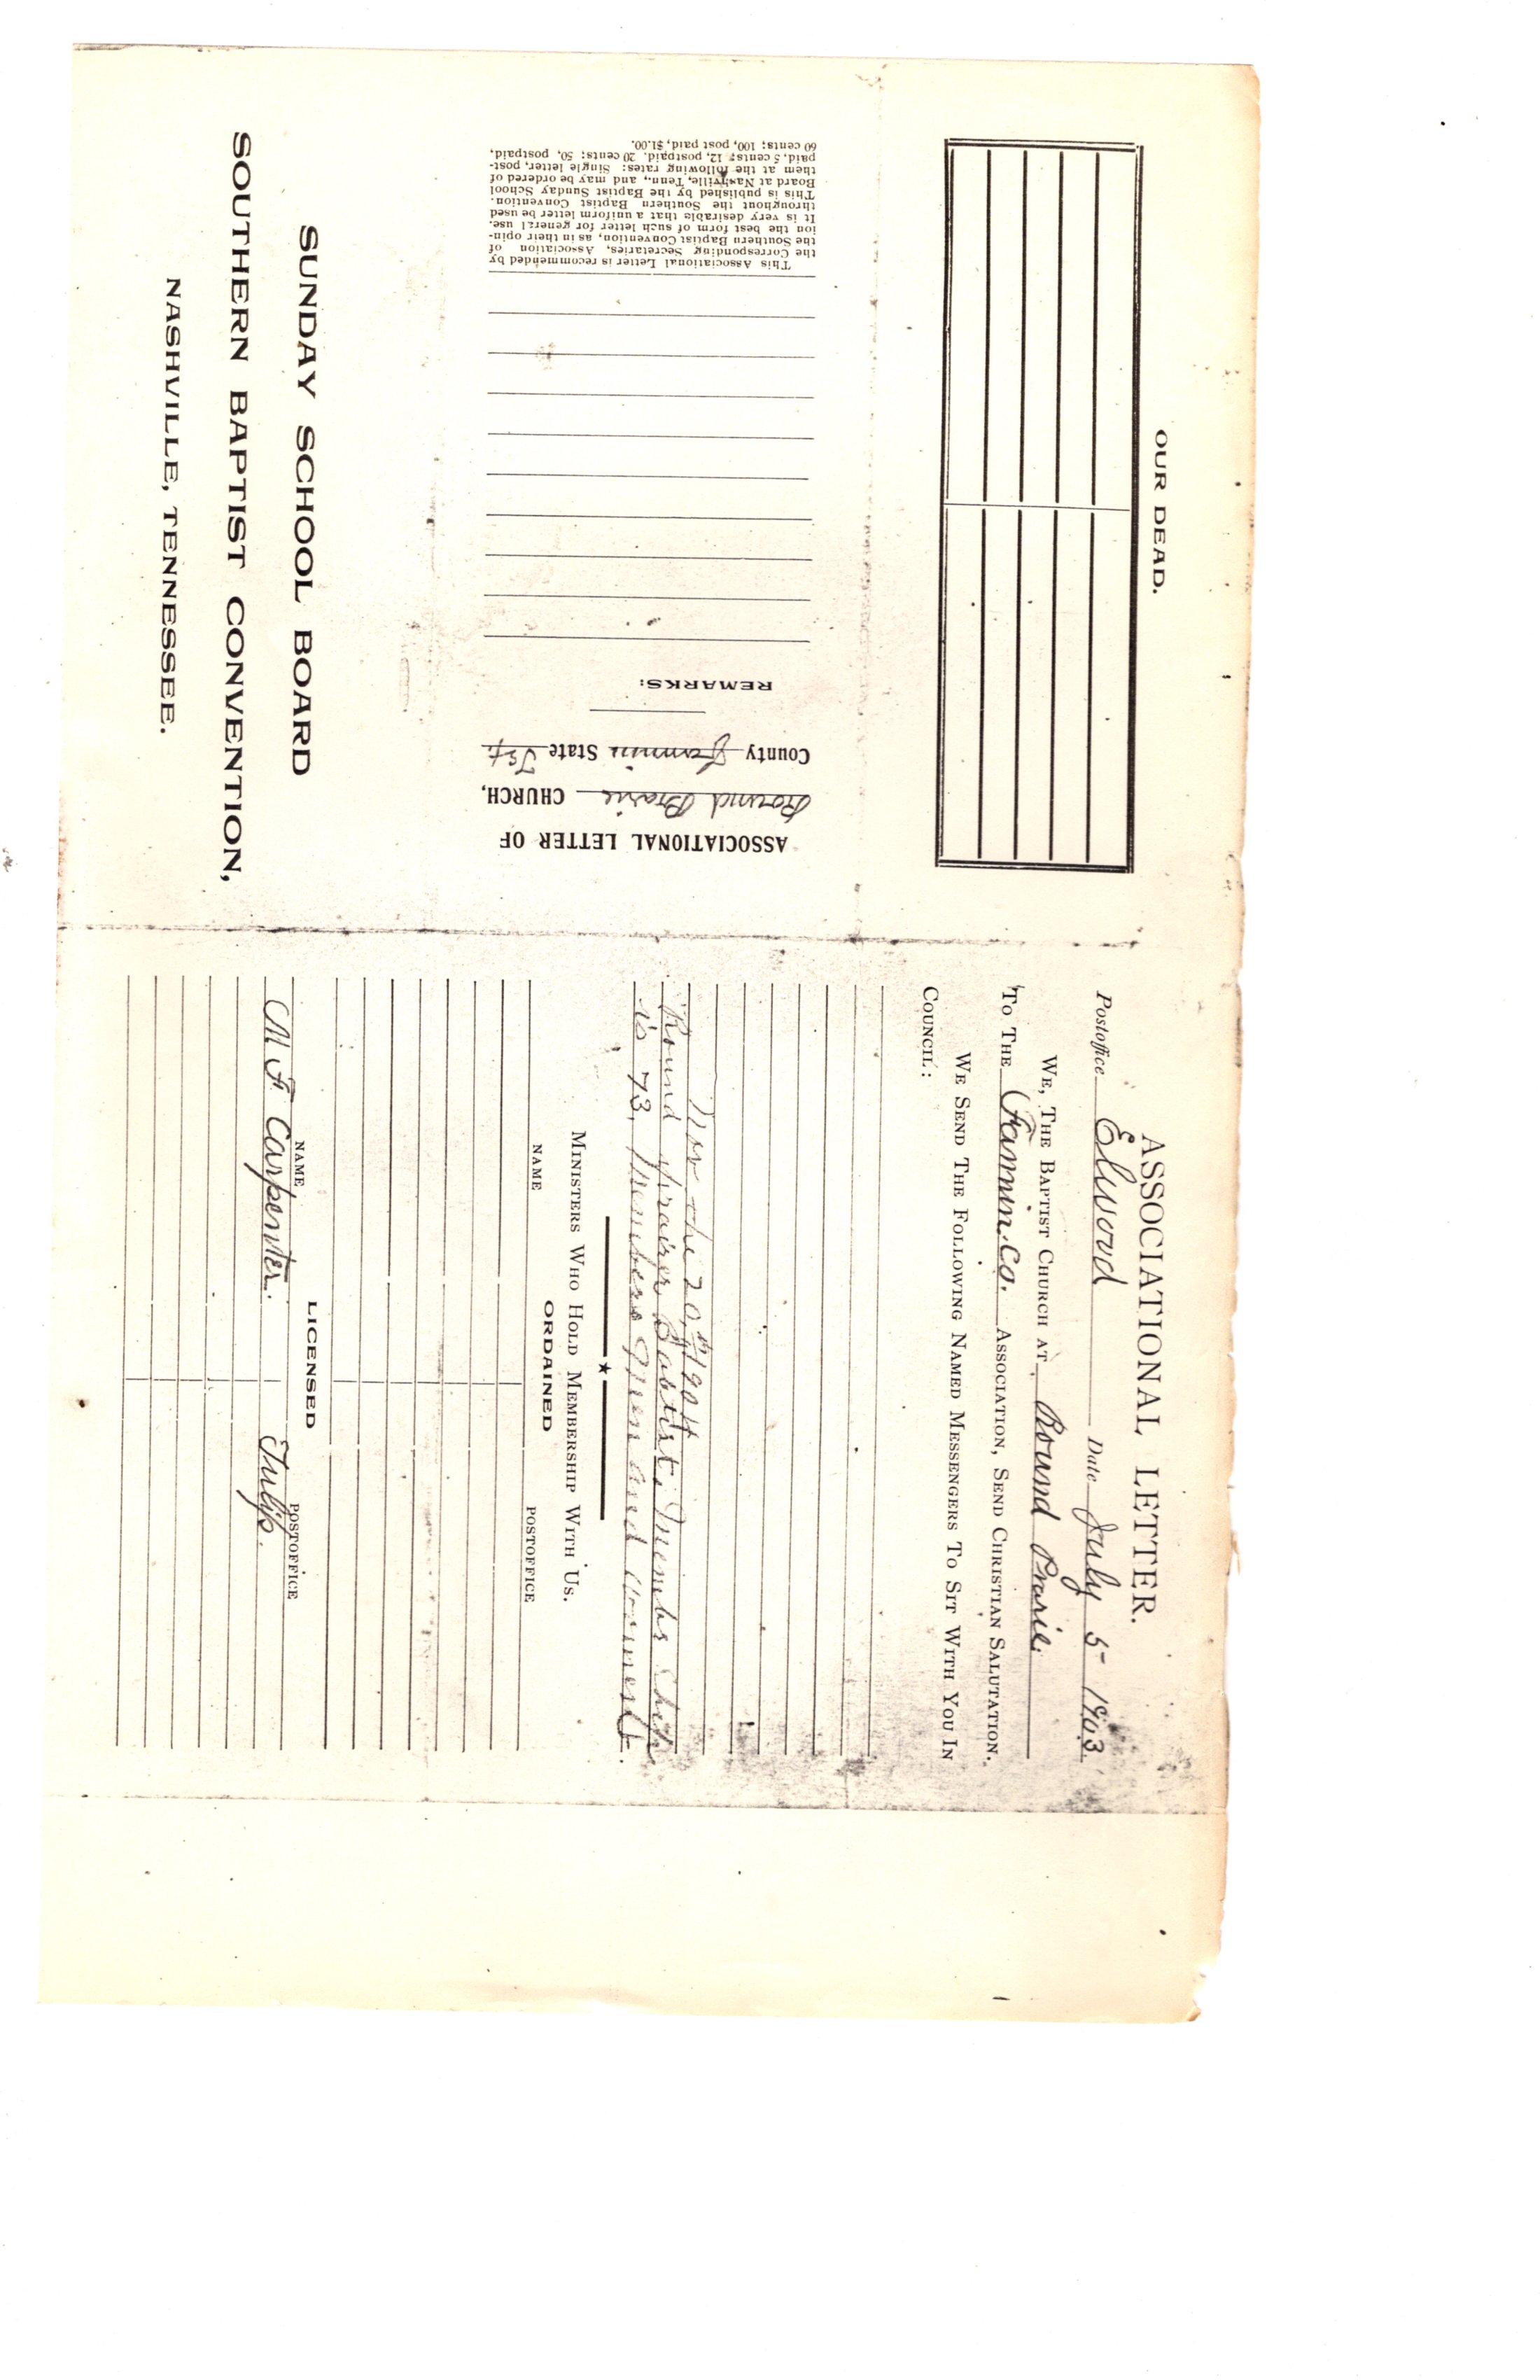 OUR DEAD.
ASSOCIATIONAL LETTER OF
Round Prarie CHURCH,
County Fannin State Tex
REMARKS:
This Associational Letter is recommended by
the Corresponding Secretaries, Association of
the Southern Baptist Convention, as in their opin-
ion the best form of such letter for general use.
It is very desirable that a uniform letter be used
throughout the Southern Baptist Convention.
This is published by the Baptist Sunday School
Board at Nashville, Tenn., and may be ordered of
them at the following rates: Single letter, post-
paid, 5 cents; 12, postpaid, 20 cents; 50, postpaid,
60 cents; 100, post paid, $1.00.
SUNDAY SCHOOL BOARD
SOUTHERN BAPTIST CONVENTION,
NASHVILLE, TENNESSEE.
ASSOCIATIONAL LETTER.
Postoffice Elwood Date July 5 1903
WE, THE BAPTIST CHURCH AT Round Prarie
TO THE Fannin Co. ASSOCIATION, SEND CHRISTIAN SALUTATION.
WE SEND THE FOLLOWING NAMED MESSENGERS TO SIT WITH YOU IN
COUNCIL:
Nov the 20, 1904
Round prairie Babtist Members Chip
is 73, Members Men and
MINISTERS WHO HOLD MEMBERSHIP WITH US.
ORDAINED
NAME POSTOFFICE
LICENSED
NAME POSTOFFICE
M F Carpenter. Tulip.